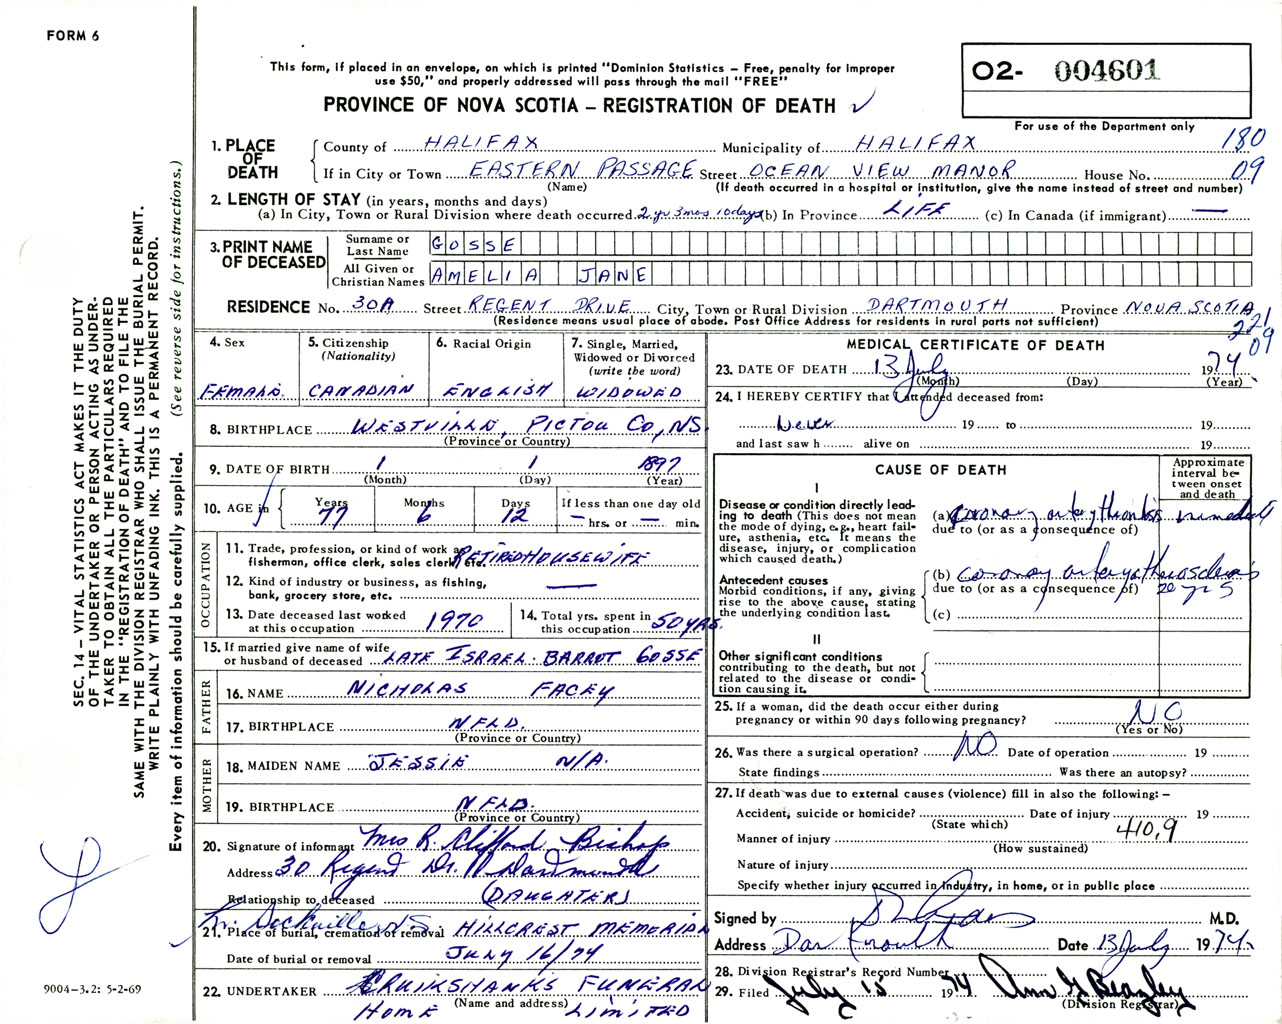 FORM 6
This form, if placed in an envelope, on which is printed "Dominion Statistics – Free, penalty for improper
use $50," and properly addressed will pass through the mail "FREE"
PROVINCE OF NOVA SCOTIA – REGISTRATION OF DEATH
02- 004601
For use of the Department only
180
09
1. PLACE OF DEATH
County of HALIFAX Municipality of HALIFAX
If in City or Town EASTERN PASSAGE Street OCEAN VIEW MANOR House No.
(Name) (If death occurred in a hospital or institution, give the name instead of street and number)
2. LENGTH OF STAY (in years, months and days)
(a) In City, Town or Rural Division where death occurred 2 yr 3 mos 10 days (b) In Province LIFE (c) In Canada (if immigrant) —
3. PRINT NAME OF DECEASED
Surname or Last Name GOSSE
All Given or Christian Names AMELIA JANE
RESIDENCE No. 30A Street REGENT DRIVE City, Town or Rural Division DARTMOUTH Province NOVA SCOTIA
(Residence means usual place of abode. Post Office Address for residents in rural parts not sufficient)
221
09
4. Sex
FEMALE
5. Citizenship
(Nationality)
CANADIAN
6. Racial Origin
ENGLISH
7. Single, Married,
Widowed or Divorced
(write the word)
WIDOWED
8. BIRTHPLACE WESTVILLE, PICTOU Co, NS.
(Province or Country)
9. DATE OF BIRTH 1 1 1897
(Month) (Day) (Year)
10. AGE in Years 77 Months 6 Days 12
If less than one day old
— hrs. or — min.
OCCUPATION
11. Trade, profession, or kind of work as
fisherman, office clerk, sales clerk, etc. RETIRED HOUSEWIFE
12. Kind of industry or business, as fishing,
bank, grocery store, etc. —
13. Date deceased last worked
at this occupation 1970
14. Total yrs. spent in
this occupation 50 YRS.
15. If married give name of wife
or husband of deceased LATE ISRAEL BARROT GOSSE
FATHER
16. NAME NICHOLAS FACEY
17. BIRTHPLACE NFLD.
(Province or Country)
MOTHER
18. MAIDEN NAME JESSIE N/A.
19. BIRTHPLACE NFLD.
(Province or Country)
20. Signature of informant Mrs R. Clifford Bishop
Address 30 Regent Dr. Dartmouth
Relationship to deceased (DAUGHTER)
Sackville N.S.
21. Place of burial, cremation or removal HILLCREST MEMORIAL
Date of burial or removal JULY 16/74
22. UNDERTAKER CRUIKSHANKS FUNERAL
(Name and address)
HOME LIMITED
MEDICAL CERTIFICATE OF DEATH
23. DATE OF DEATH 13 July 1974
(Month) (Day) (Year)
24. I HEREBY CERTIFY that I attended deceased from:
Never 19 to 19
and last saw h alive on 19
CAUSE OF DEATH
Approximate
interval be-
tween onset
and death
I
Disease or condition directly lead-
ing to death (This does not mean
the mode of dying, e.g., heart fail-
ure, asthenia, etc. It means the
disease, injury, or complication
which caused death.)
(a) coronary artery thrombosis immediate
due to (or as a consequence of)
Antecedent causes
Morbid conditions, if any, giving
rise to the above cause, stating
the underlying condition last.
(b) coronary artery atherosclerosis
due to (or as a consequence of) 20 yrs
(c)
II
Other significant conditions
contributing to the death, but not
related to the disease or condi-
tion causing it.
25. If a woman, did the death occur either during
pregnancy or within 90 days following pregnancy? NO
(Yes or No)
26. Was there a surgical operation? NO Date of operation 19
State findings Was there an autopsy?
27. If death was due to external causes (violence) fill in also the following: –
Accident, suicide or homicide? Date of injury 19
(State which)
410.9
Manner of injury
(How sustained)
Nature of injury
Specify whether injury occurred in industry, in home, or in public place
Signed by M.D.
Address Dartmouth Date 13 July 1974.
28. Division Registrar's Record Number
29. Filed July 15 1974 Ann G Beazley
(Division Registrar)
SEC. 14 – VITAL STATISTICS ACT MAKES IT THE DUTY
OF THE UNDERTAKER OR PERSON ACTING AS UNDER-
TAKER TO OBTAIN ALL THE PARTICULARS REQUIRED
IN THE "REGISTRATION OF DEATH" AND TO FILE THE
SAME WITH THE DIVISION REGISTRAR WHO SHALL ISSUE THE BURIAL PERMIT.
WRITE PLAINLY WITH UNFADING INK. THIS IS A PERMANENT RECORD.
Every item of information should be carefully supplied. (See reverse side for instructions.)
9004-3.2: 5-2-69